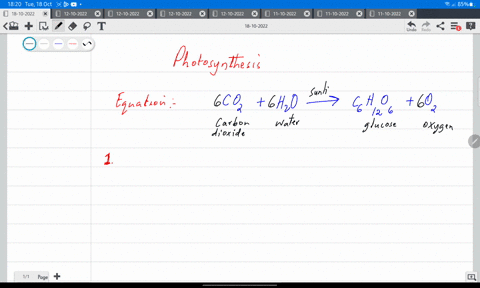 18:20 Tue, 18 Oct 85%
18-10-2022 12-10-2022 12-10-2022 12-10-2022 11-10-2022 11-10-2022 11-10-2022
18-10-2022 Undo Redo
Photosynthesis
Equation :- 6CO2 + 6H2O sunli → C6H12O6 + 6O2
Carbon dioxide water glucose oxygen
1.
1/1 Page +